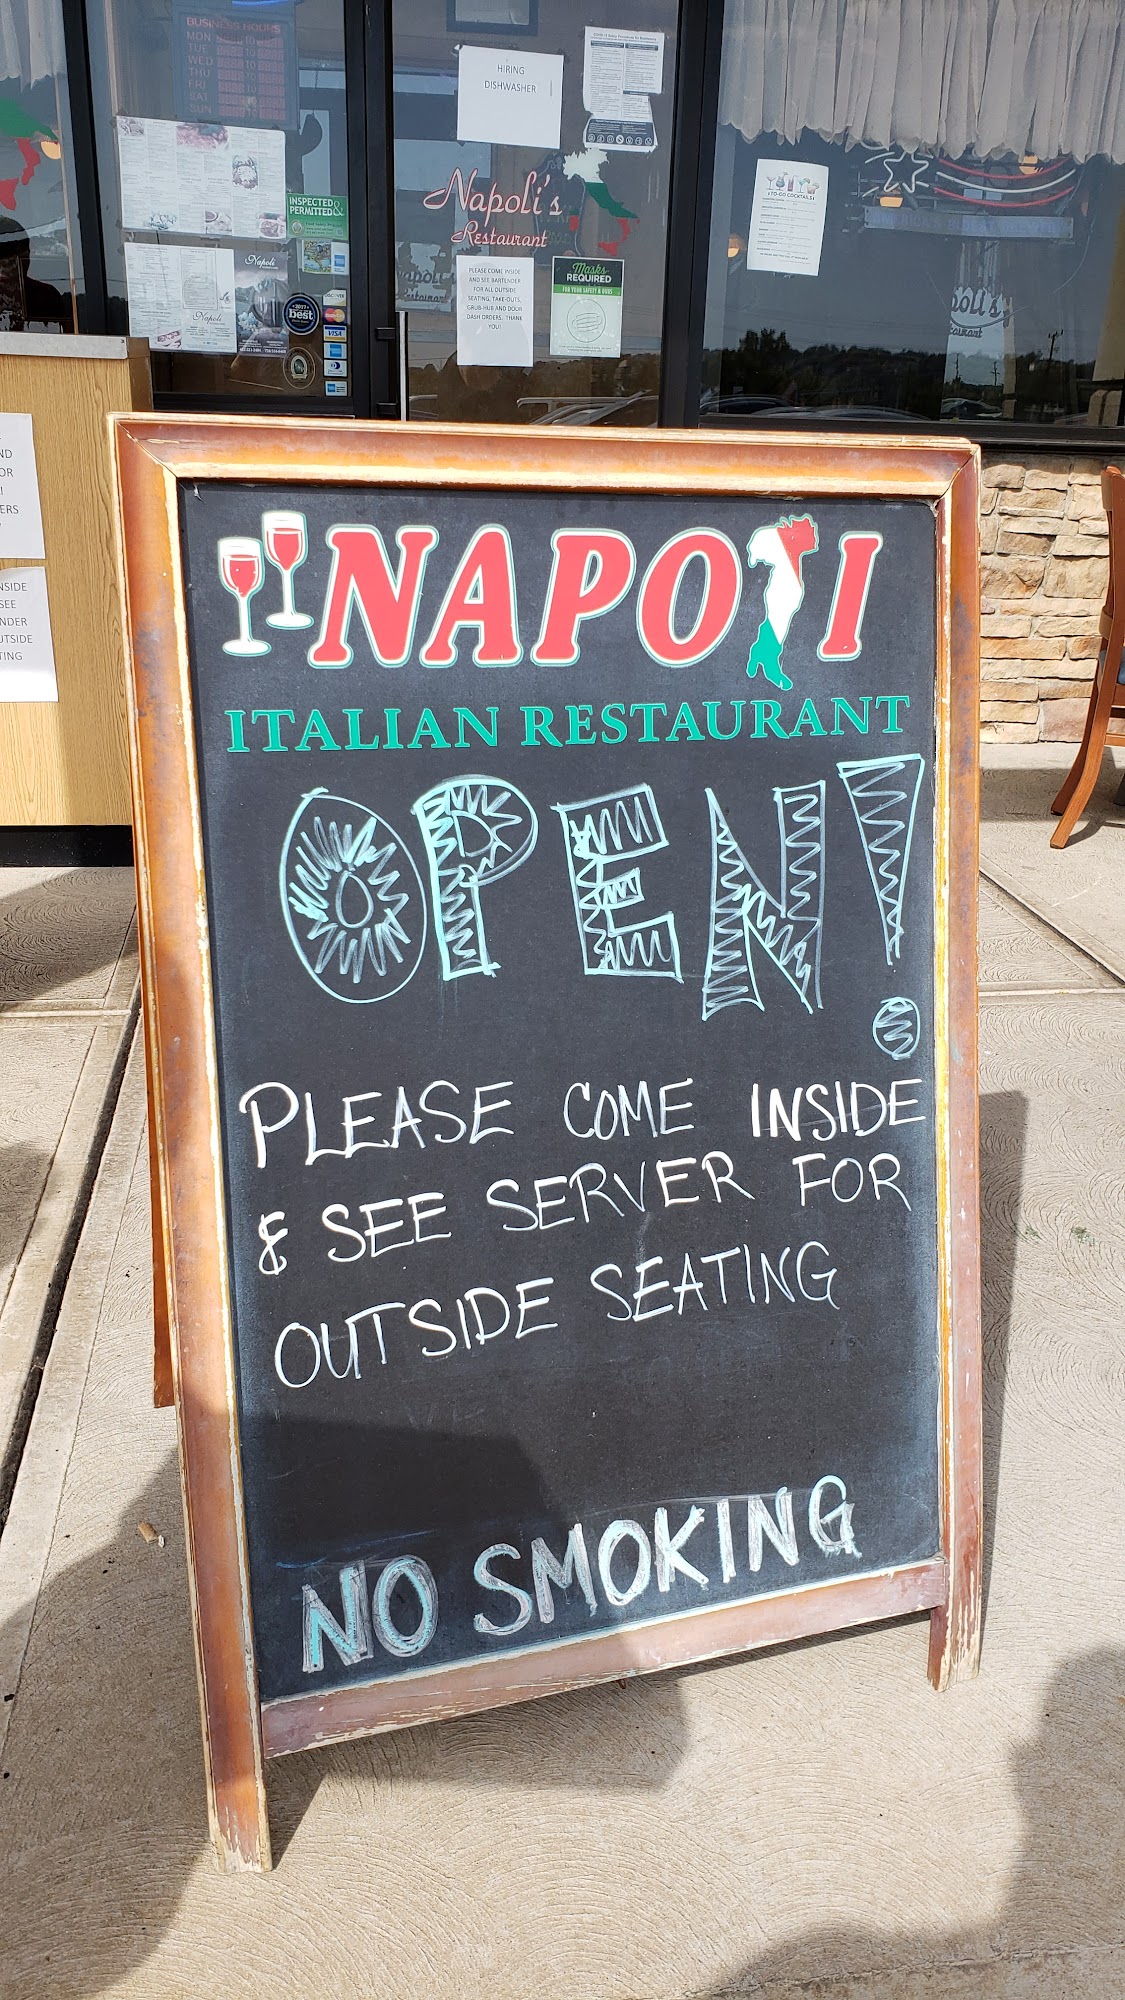 BUSINESS HOURS
MON
TUE
WED
THU
FRI
SAT
SUN
HIRING
DISHWASHER
TO-GO COCKTAILS
INSPECTED &
PERMITTED
Napoli's
Restaurant
PLEASE COME INSIDE
AND SEE BARTENDER
FOR ALL OUTSIDE
SEATING, TAKE-OUTS,
GRUB-HUB AND DOOR
DASH ORDERS. THANK
YOU!
Masks
REQUIRED
FOR YOUR SAFETY & OURS
Napoli
Napoli
2017
best
DISCOVER
VISA
NSIDE
SEE
NDER
UTSIDE
TING
NAPOLI
ITALIAN RESTAURANT
OPEN!
PLEASE COME INSIDE
& SEE SERVER FOR
OUTSIDE SEATING
NO SMOKING